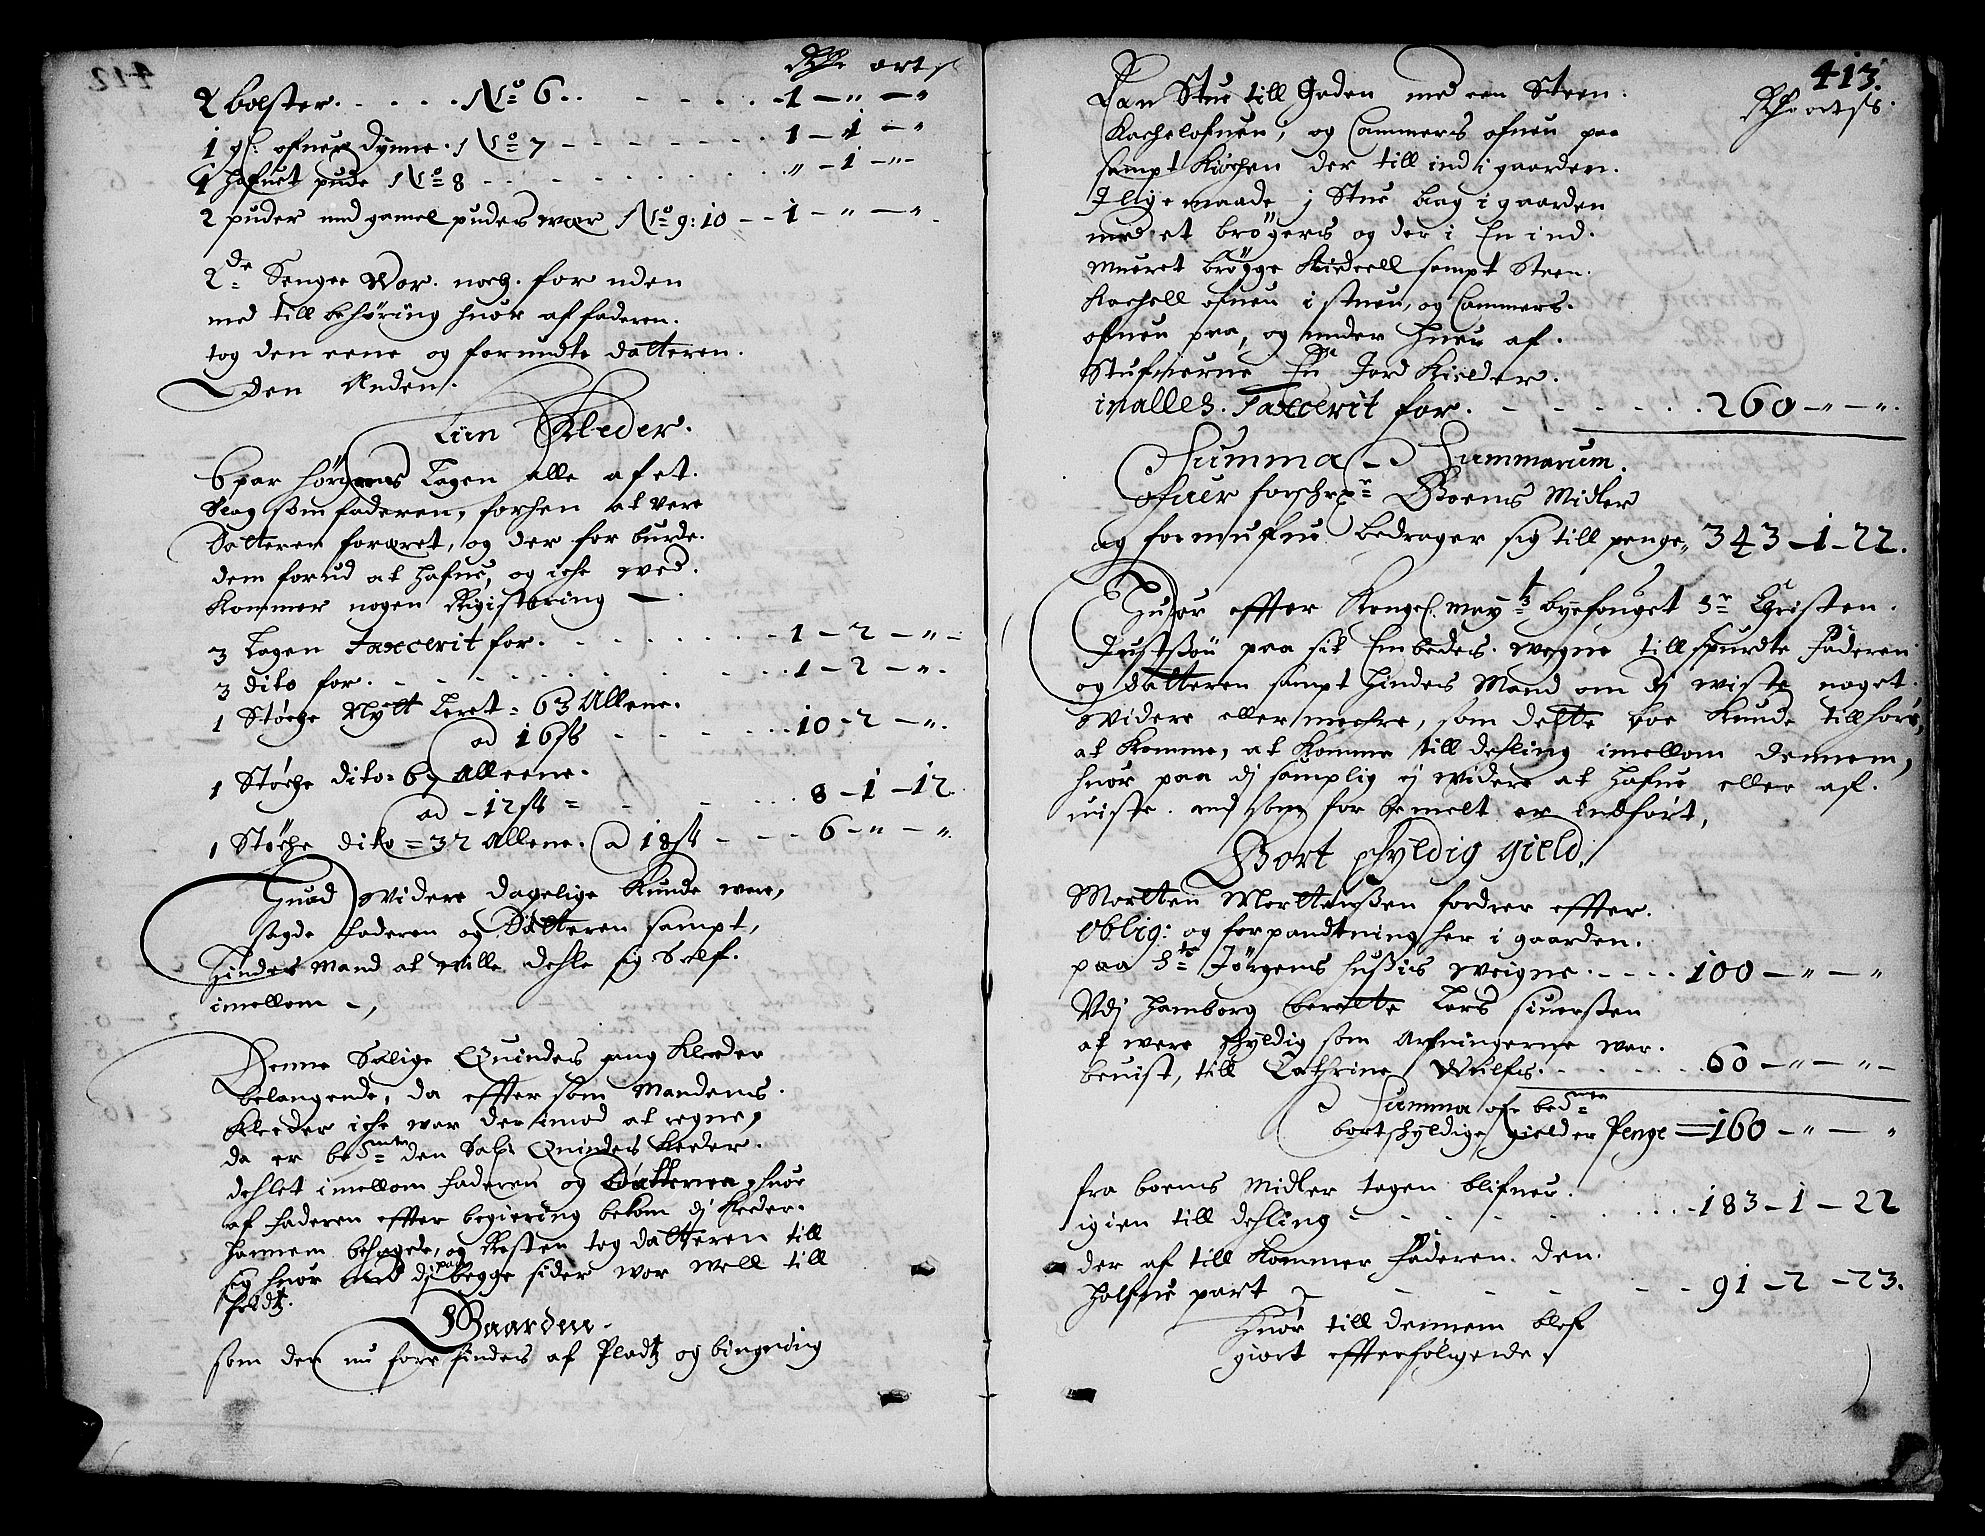 Rdlr ort ß
2 bolster. . . . . No 6. . - - - - 1 - " - "
1 gl: ofuer dynne. No 7 - - - - - 1 - 1 - "
1 hofuet pude No 8 - - - - - " - 1 - "
2 puder med gamel puders war No 9: 10 - - 1 - " - "
2de Senger War. noch. for uden
med till behøring huor af faderen.
tog den eene og forundte datteren.
den Anden.
Liin Kleder.
6 par hørgarns Lagen alle af et.
slag som faderen, forhen at vere
datteren foræret, og der for burde.
dem forud at hafue, og iche wed.
Kommer nogen Rigistering -
3 Lagen Taxcerit for. - - - - - 1 - 2 - "
3 dito for. - - - - - 1 - 2 - "
1 Støche Nytt Leret = 63 Allene.
ad 16 ß - - - - 10 - 2 - "
1 Støche dito = 67 Alleene.
ad - 12 ß = - - - 8 - 1 - 12
1 Støche dito = 32 Allene. ad 18 ß - - - 6 - " - "
Huad widere dagelige Kunde were,
sagde faderen og Datteren sampt,
hindes Mand at wille dehle sig Self.
imellom -,
Denne Salige Quindes gang Kleeder
belangende, da effter som Mandens.
Kleeder iche war der imod at regne,
da er bemte den Sal: Quindes Kleeder.
dehlet imellom faderen og Datteren, huor
af faderen effter begiering bekom dj kleder.
hannem behagede, og Resten tog datteren till
sig huor med dj paa begge sider war well till
fridtz.
Gaarden.
som der nu forre findes af Pladtz og bingning
413.
Rdr ort ß.
Een Stue till Gaden med een Steen.
Kachelofuen, og Cammers ofuen paa
sampt Kiøchen der till ind i gaarden.
I lige maade j Stue bag i gaarden
med et brøgers og der i En ind.
mueret brøgge Kiedell sampt Steen.
Kachell ofuen i stuen, og Cammers.
ofuen paa, og under huer af.
Stufuerne En Jord Kielder.
in alles. Taxcerit for. - - - - - 260 - " - "
Summa - Summarum.
ofuer forschrne Boens Midler
og formufue bedrager sig till penge, 343 - 1 - 22.
Huor effter Kongel. mayts byefouget Sr Christen.
Justßøn paa sit Embedes. wegne till spurdte faderen
og datteren sampt hindes Mand om dj wiste noget.
widere eller meehre, som dette boe Kunde tillhøre,
at Komme, at Komme till dehling imellom dennem,
huor paa dj samptlig ej widere at hafue eller af.
uiste. end som for bemelt er indført,
Bort schyldig gield.
Mortten Morttenßen fordrer effter.
Oblig: og forpandtning her i gaarden.
paa Sr Jørgens hußis weigne. - - - 100 - " - "
Vdj Hamborg berette Lars siuerßen
at were schyldig som Arfuingerne war.
beuist, till Cathrine Wulfs. - - - - 60 - " - "
Summa ofr bedmten
bortschyldige gielder Penge = 160 - " - "
fra boens Midler tagen blifuer.
igien till dehling - - - - - 183 - 1 - 22
der af till Kommer faderen. den.
halfue part - - - - - 91 - 2 - 23.
Huor till dennem blef
giort effterfølgende